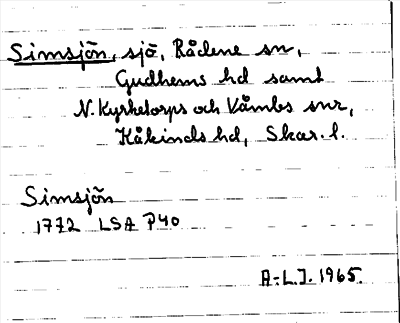 Simsjön, sjö, Rådene sn,
Gudhems hd samt
N. Kyrketorps och Våmbs snr,
Kåkinds hd, Skar. l.
Simsjön
1772 LSA P40
A-L.J. 1965.